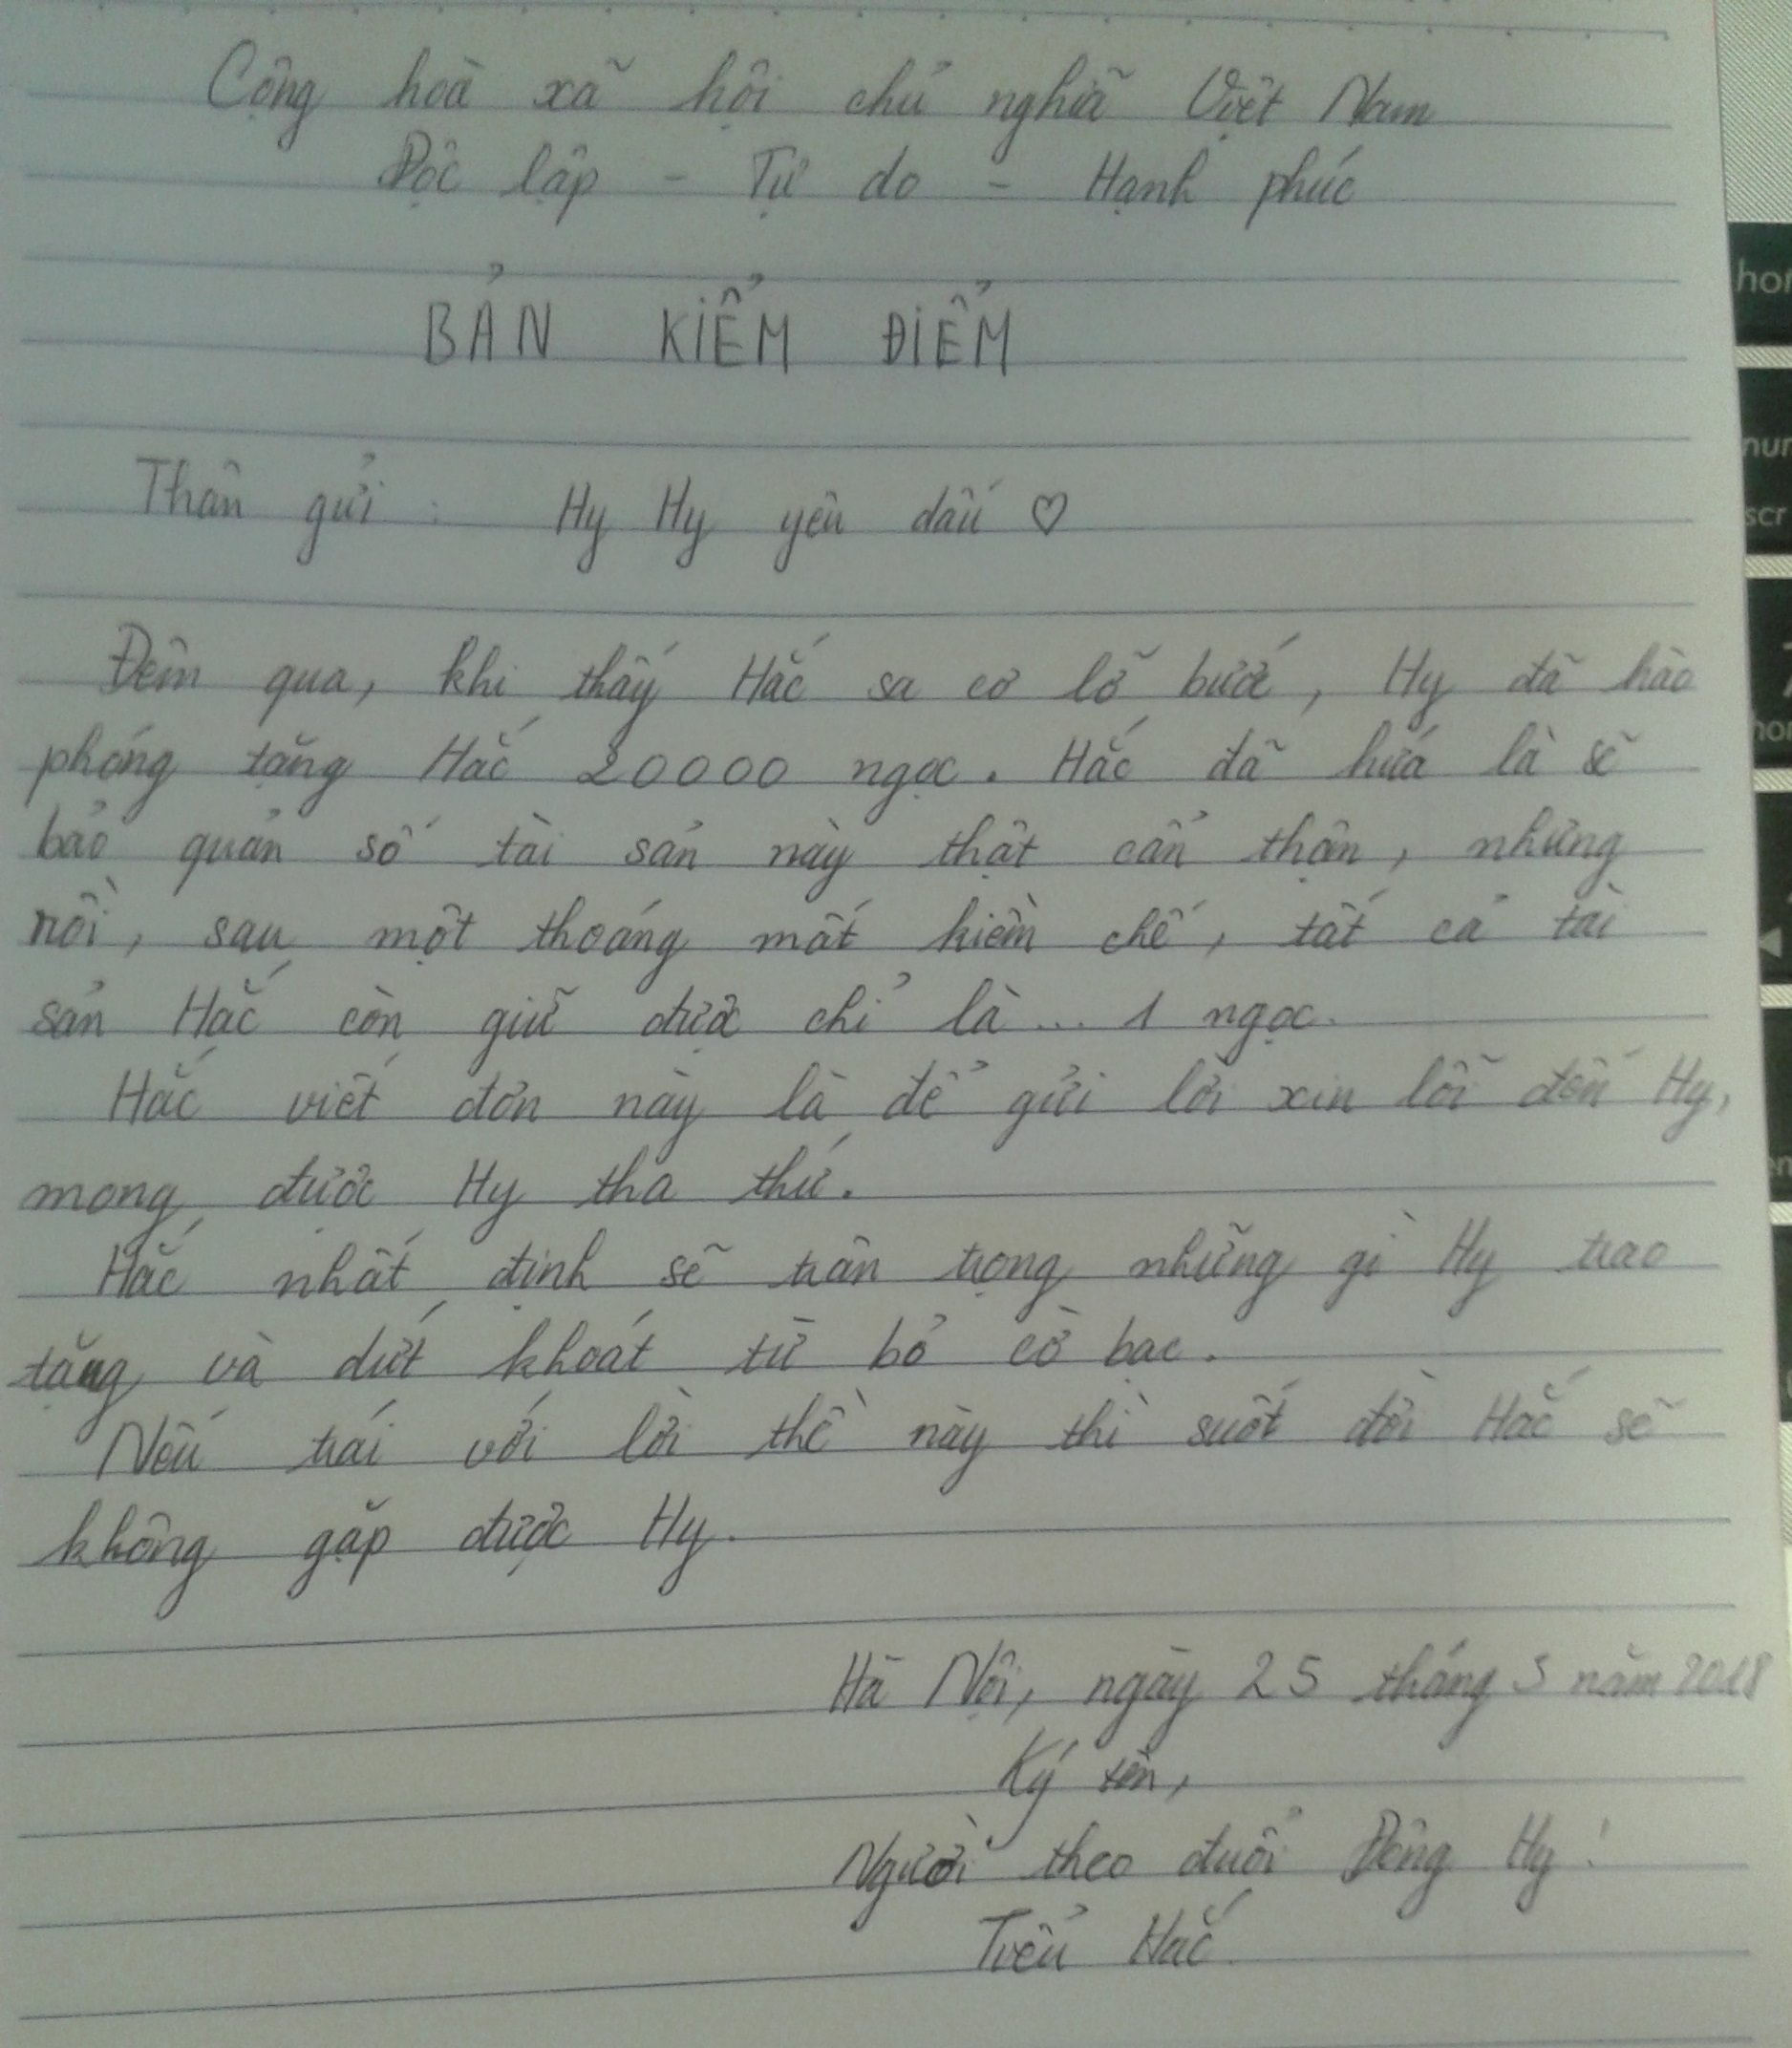 Cộng hoà xã hội chủ nghĩa Việt Nam
Độc lập - Tự do - Hạnh phúc
BẢN KIỂM ĐIỂM
Thân gửi : Hy Hy yêu dấu ♡
Đêm qua, khi thấy Hắc sa cơ lỡ bước, Hy đã hào
phóng tặng Hắc 20000 ngọc. Hắc đã hứa là sẽ
bảo quản số tài sản này thật cẩn thận, nhưng
rồi, sau một thoáng mất kiềm chế, tất cả tài
sản Hắc còn giữ được chỉ là... 1 ngọc.
Hắc viết đơn này là để gửi lời xin lỗi đến Hy,
mong được Hy tha thứ.
Hắc nhất định sẽ trân trọng những gì Hy trao
tặng và dứt khoát từ bỏ cờ bạc.
Nếu trái với lời thề này thì suốt đời Hắc sẽ
không gặp được Hy.
Hà Nội, ngày 25 tháng 3 năm 2018
Ký tên,
Người theo đuổi Đông Hy !
Tiểu Hắc
home
num
scr
7
home